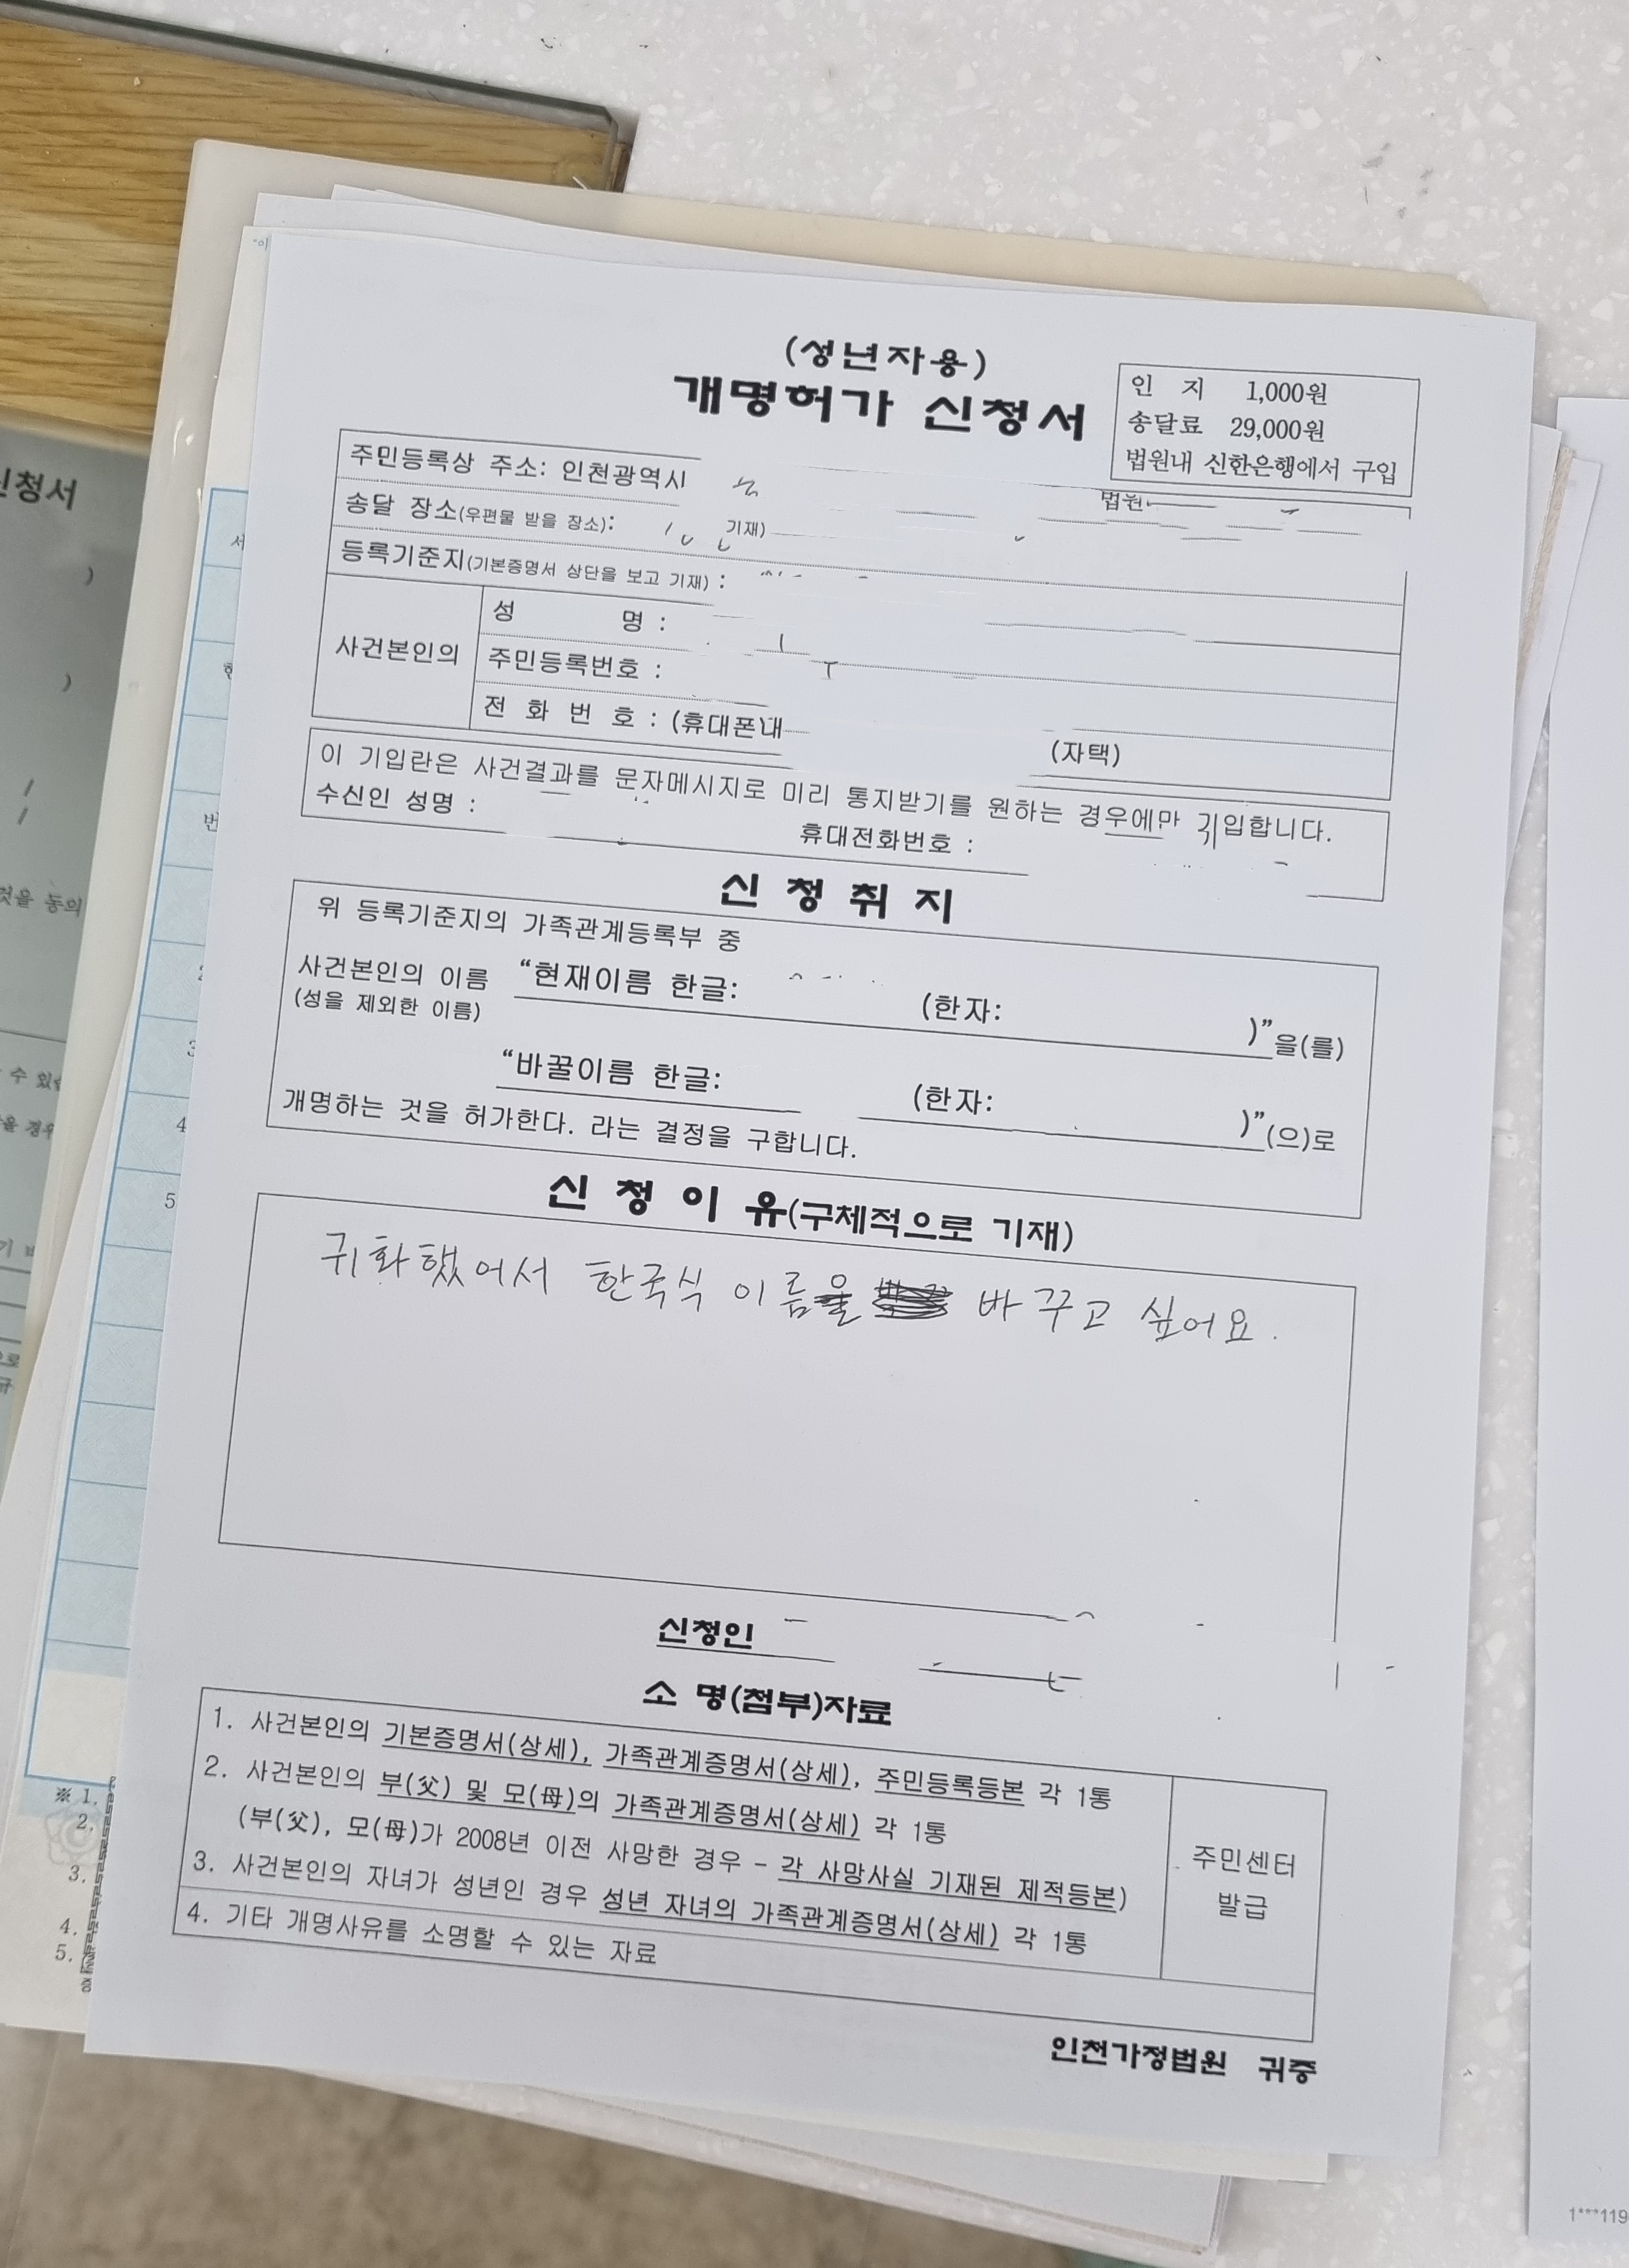 (성년자용)
개명허가 신청서
인 지 1,000원
송달료 29,000원
법원내 신한은행에서 구입
주민등록상 주소: 인천광역시
법원
송달 장소(우편물 받을 장소): 기재)
등록기준지(기본증명서 상단을 보고 기재) :
사건본인의
성 명 :
주민등록번호 :
전 화 번 호 : (휴대폰)내 (자택)
이 기입란은 사건결과를 문자메시지로 미리 통지받기를 원하는 경우에만 기입합니다.
수신인 성명 : 휴대전화번호 :
신 청 취 지
위 등록기준지의 가족관계등록부 중
사건본인의 이름 “현재이름 한글: (한자: )”을(를)
(성을 제외한 이름)
“바꿀이름 한글: (한자: )”(으)로
개명하는 것을 허가한다. 라는 결정을 구합니다.
신 청 이 유(구체적으로 기재)
귀화했어서 한국식 이름을 바꾸고 싶어요.
신청인
소 명(첨부)자료
1. 사건본인의 기본증명서(상세), 가족관계증명서(상세), 주민등록등본 각 1통
2. 사건본인의 부(父) 및 모(母)의 가족관계증명서(상세) 각 1통
(부(父), 모(母)가 2008년 이전 사망한 경우 - 각 사망사실 기재된 제적등본)
3. 사건본인의 자녀가 성년인 경우 성년 자녀의 가족관계증명서(상세) 각 1통
4. 기타 개명사유를 소명할 수 있는 자료
주민센터
발급
인천가정법원 귀중
신청서
것을 동의
4
5
※ 1.
2.
3.
4.
5.
1***119